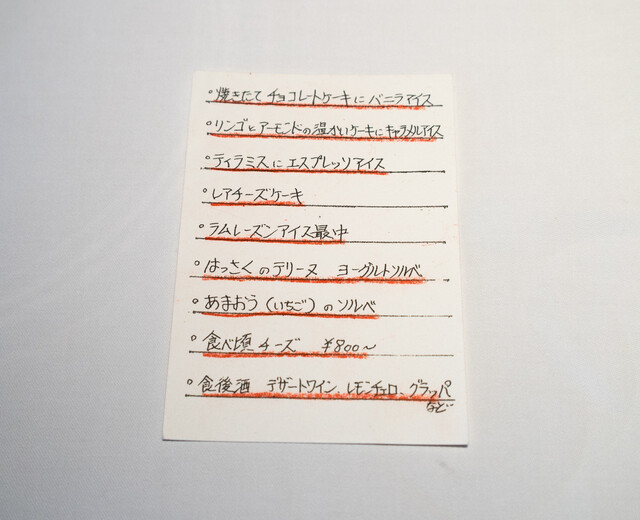 ° 焼きたて チョコレートケーキに バニラアイス
° リンゴとアーモンドの温かいケーキに キャラメルアイス
° ティラミスに エスプレッソアイス
° レアチーズケーキ
° ラムレーズンアイス最中
° はっさくのテリーヌ ヨーグルトソルベ
° あまおう(いちご)のソルベ
° 食べ頃チーズ ¥800〜
° 食後酒 デザートワイン、レモンチェロ、グラッパ
など